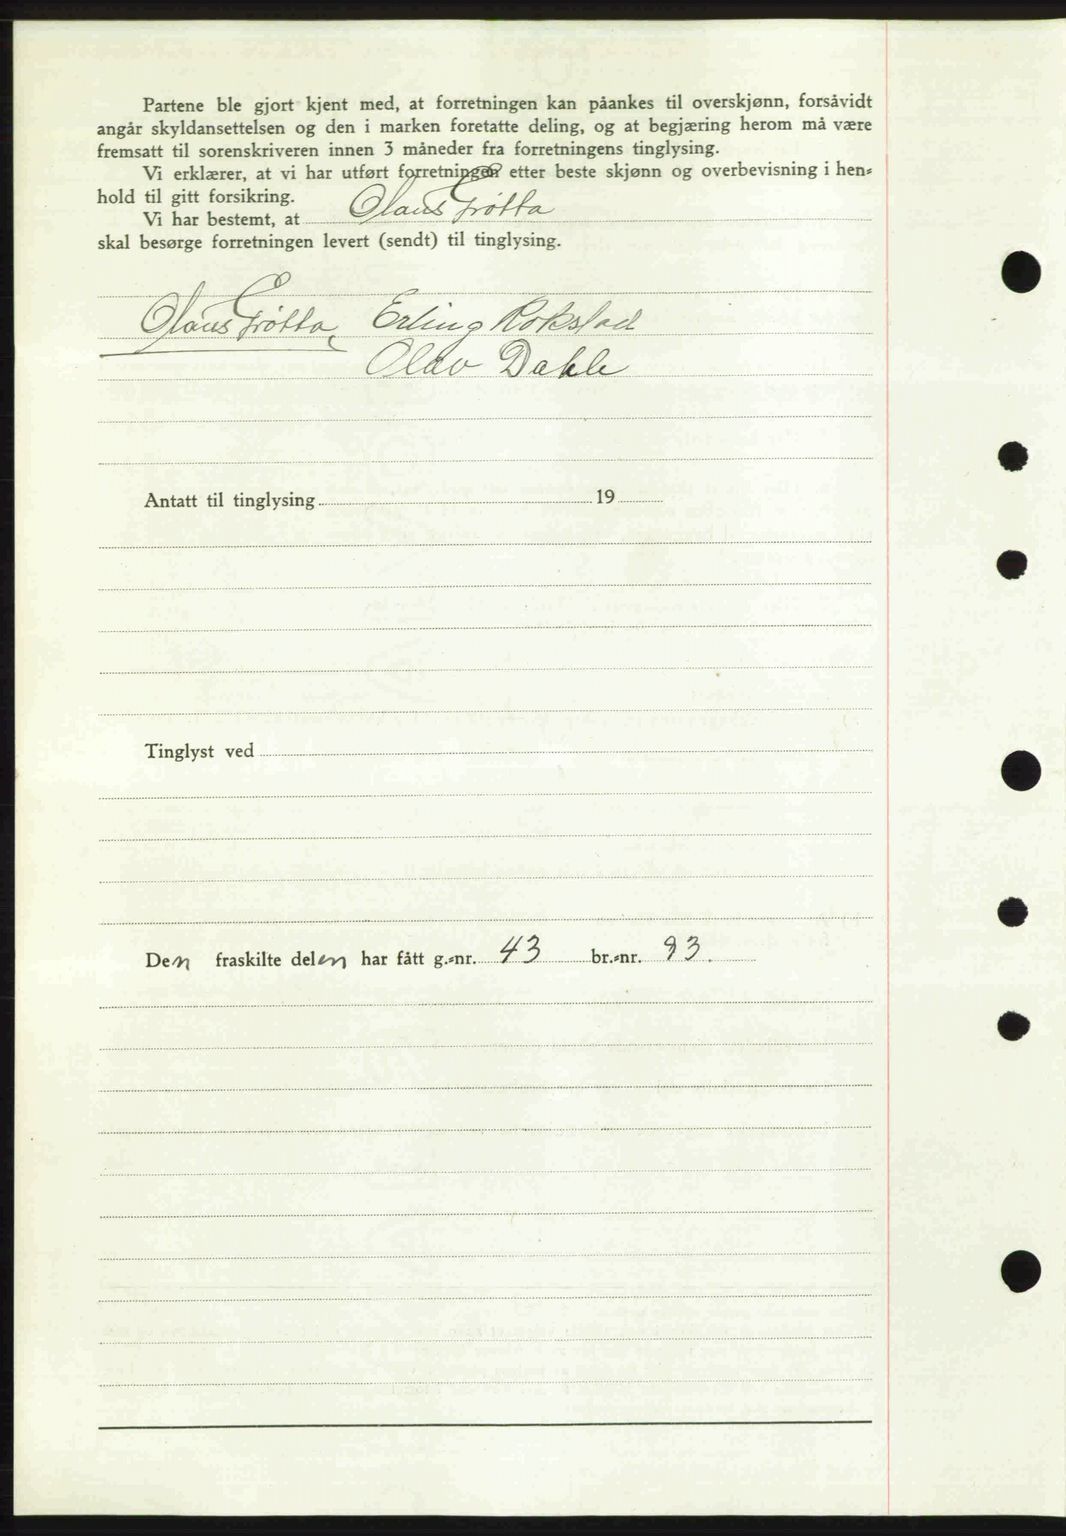 Partene ble gjort kjent med, at forretningen kan påankes til overskjønn, forsåvidt
angår skyldansettelsen og den i marken foretatte deling, og at begjæring herom må være
fremsatt til sorenskriveren innen 3 måneder fra forretningens tinglysing.
Vi erklærer, at vi har utført forretningen etter beste skjønn og overbevisning i hen-
hold til gitt forsikring.
Vi har bestemt, at Olaus Grøtta
skal besørge forretningen levert (sendt) til tinglysing.
Olaus Grøtta, Erling Rokstad
Olav Dahle
Antatt til tinglysing 19
Tinglyst ved
Den fraskilte delen har fått g.-nr. 43 br.-nr. 93.